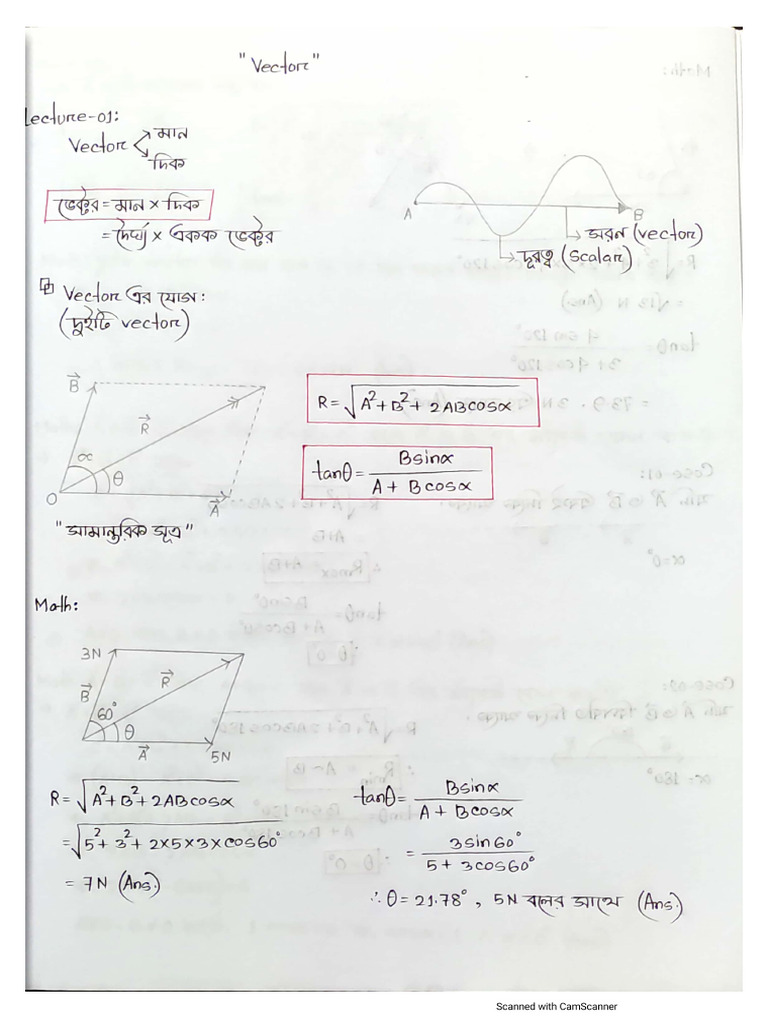 "Vector"
Lecture-01:
Vector
মান
দিক
ভেক্টর = মান × দিক
= দৈর্ঘ্য × একক ভেক্টর
A
B
সরন (vector)
দূরত্ব (Scalar)
Vector এর যোগ:
(দুইটি vector)
B⃗
R⃗
α
θ
O
A⃗
R = √A²+B²+2ABcosα
tanθ = Bsinα / A + Bcosα
"সামান্তরিক সূত্র"
Math:
3N
B⃗
R⃗
60°
θ
A⃗
5N
R = √A²+B²+2ABcosα
= √5²+3²+2×5×3×cos60°
= 7N (Ans.)
tanθ = Bsinα / A + Bcosα
= 3sin60° / 5 + 3cos60°
∴ θ = 21.78°, 5N বলের সাথে (Ans.)
Scanned with CamScanner